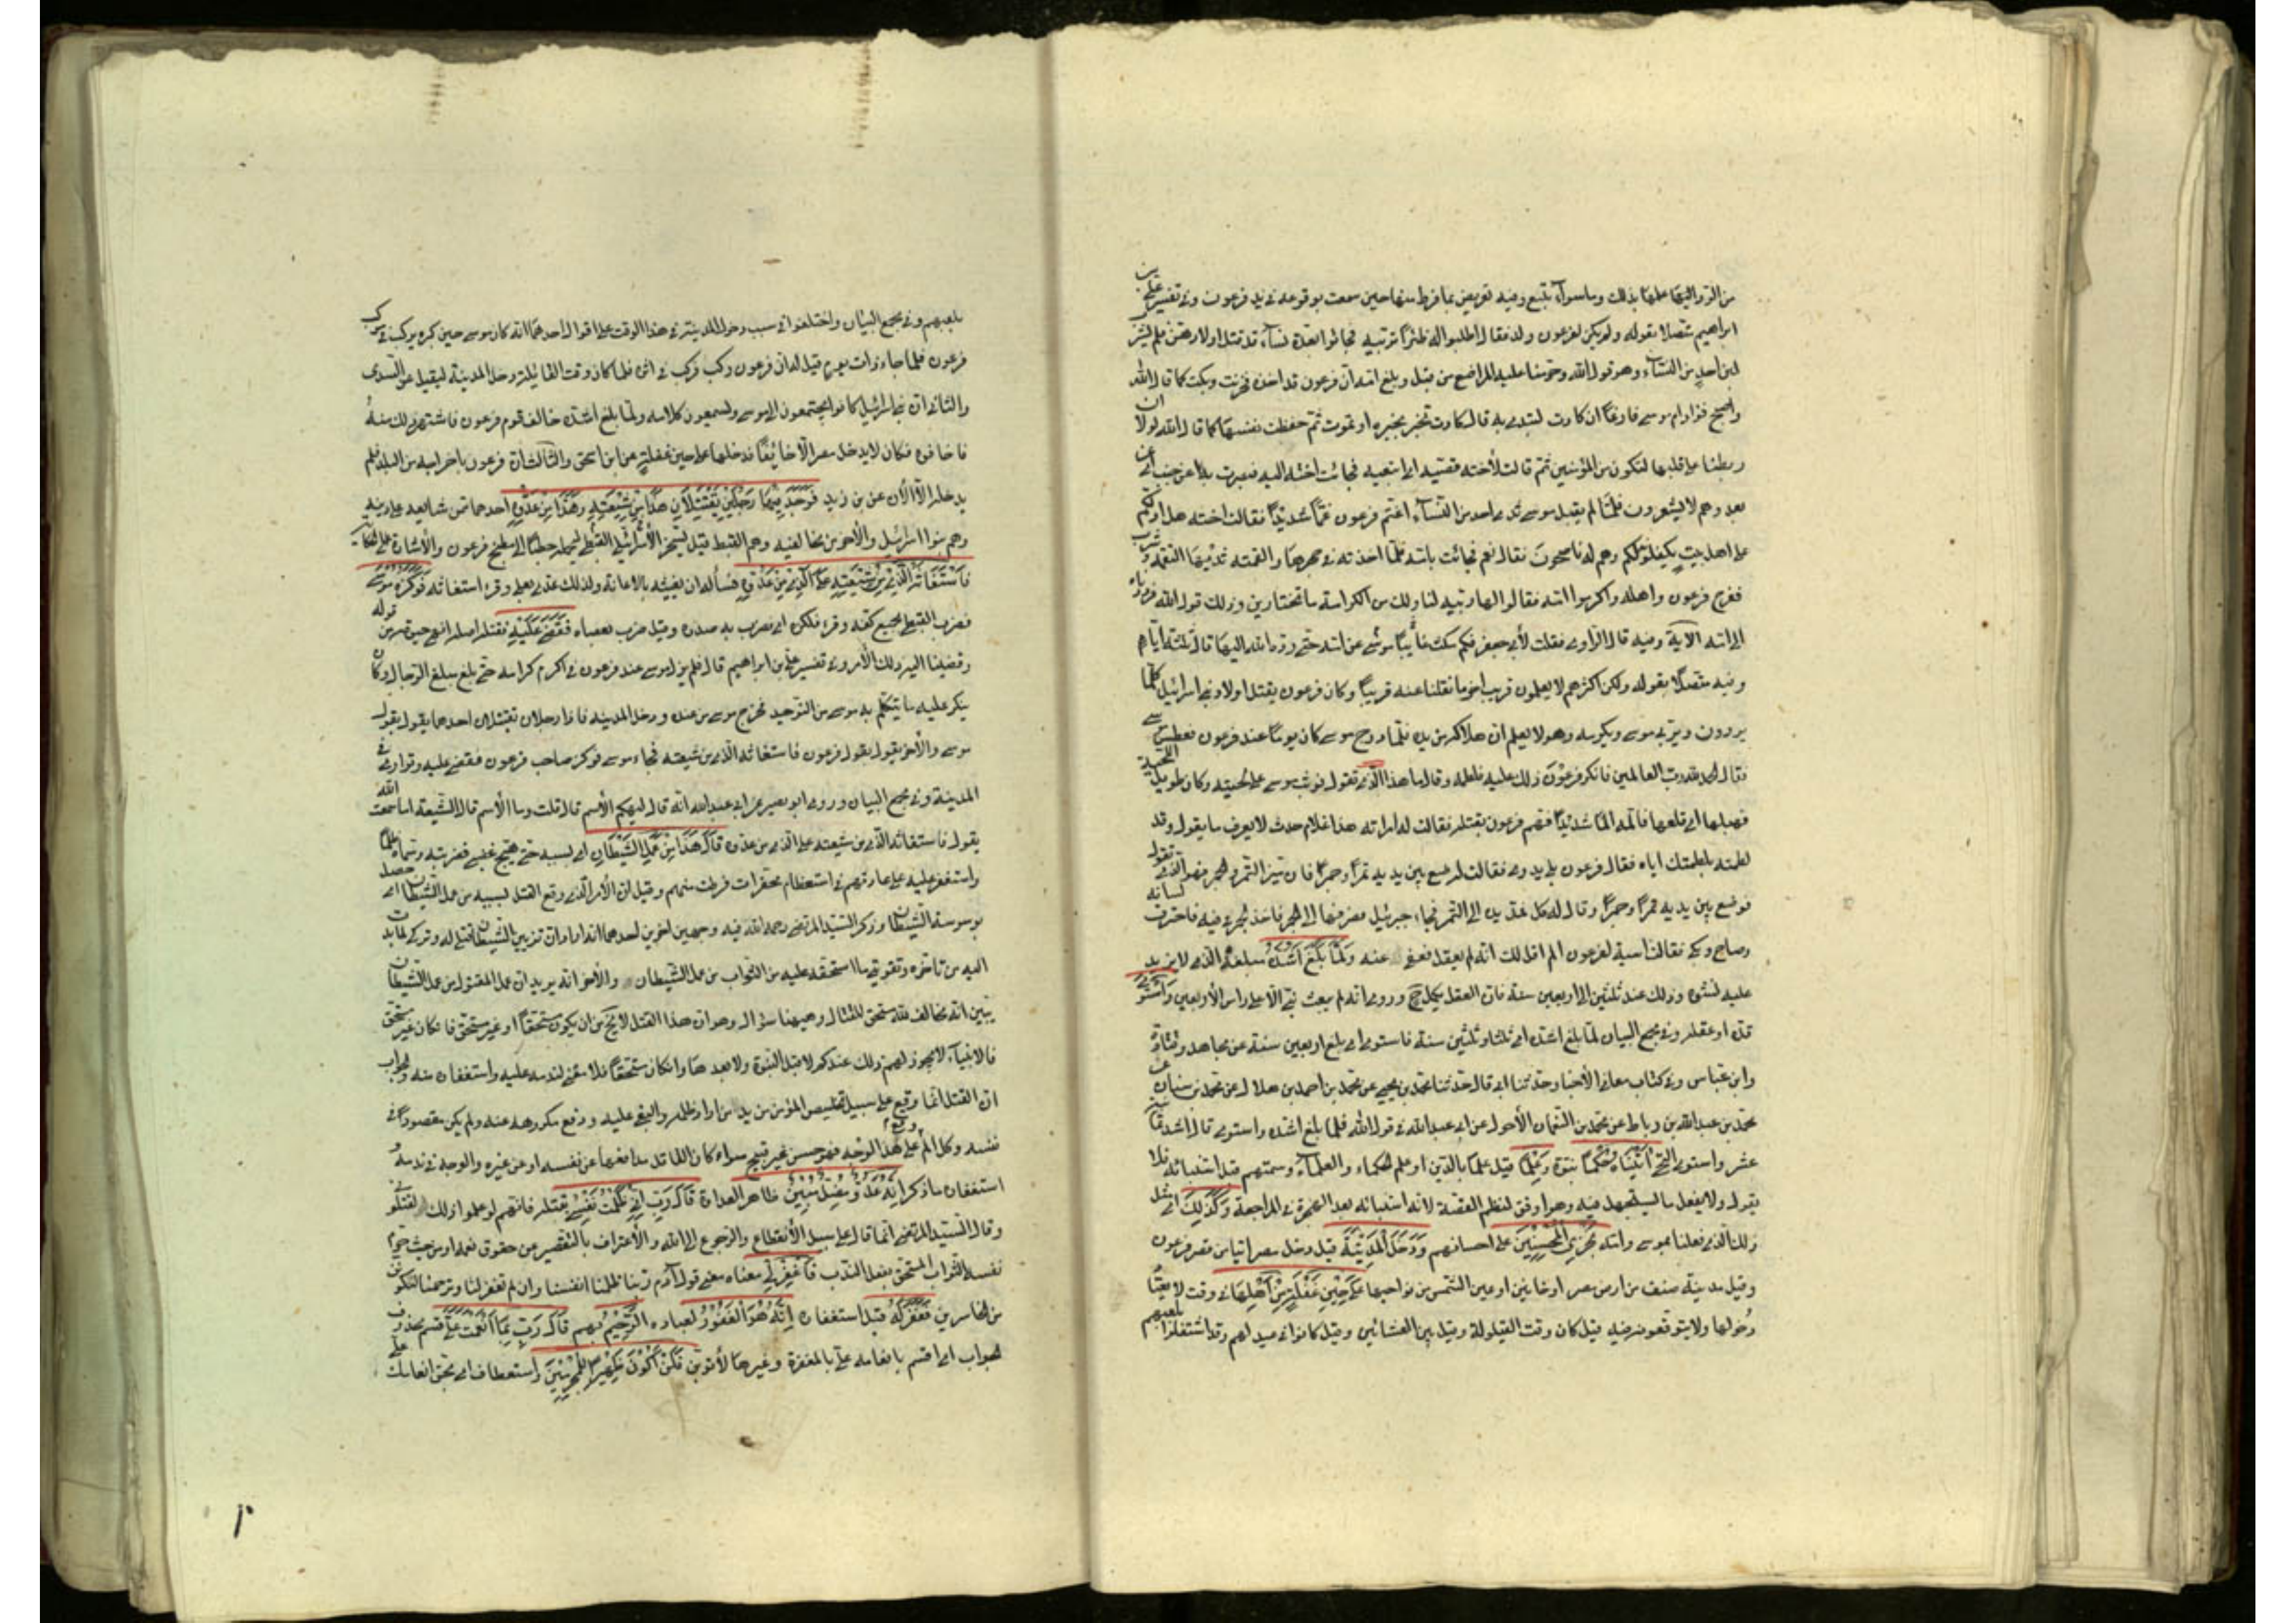 من الرد اليها علمها بذلك وما سواه تبع وفيه تعريض بما فرط منها حين سمعت بوقوعه في يد فرعون وفي تفسير علي بن
ابراهيم متصلا بقوله ولم يكن لفرعون ولد فقال اطلبوا له ظئرا تربيه فجائوا بعدة نسآء قد قتل اولادهن فلم يشرب
لبن احد من النسآء وهو قول الله وحرمنا عليه المراضع من قبل وبلغ امه ان فرعون قد اخذه فحزنت وبكت كما قال الله
واصبح فؤاد ام موسى فارغا ان كادت لتبدي به قال كادت تخبر بخبره او تموت ثم حفظت نفسها كما قال الله لولا ان
ربطنا على قلبها لتكون من المؤمنين ثم قالت لأخته قصيه اي اتبعيه فجائت اخته اليه فبصرت به عن جنب اي عن
بعد وهم لا يشعرون فلما لم يقبل موسى ثدي احد من النسآء اغتم فرعون غما شديدا فقالت اخته هل ادلكم
على اهل بيت يكفلونه لكم وهم له ناصحون فقال نعم فجائت بامه فلما اخذته في حجرها والقمته ثديها التقمه وشرب
ففرح فرعون واهله واكرموا امه فقالوا لها ربيه لنا ولك من الكرامة ما تختارين وذلك قول الله فرددناه
الى امه الآية وفيه قال الراوي فقلت لأبي جعفر فكم مكث غائبا موسى عن امه حتى رده الله اليها قال ثلثة ايام
وفيه متصلا بقوله ولكن اكثرهم لا يعلمون قريب اخر ما نقلنا عنه قريبا وكان فرعون يقتل اولاد بني اسرائيل كلما
يردون ويربي موسى ويكرمه وهو لا يعلم ان هلاكه من يده فلما درج موسى كان يوما عند فرعون فعطس موسى
فقال الحمد لله رب العالمين فانكر فرعون ذلك عليه فلطمه وقال ما هذا الذي تقول فوثب موسى على لحيته وكان طويل اللحية
فهبلها اي قلعها فآلمه الما شديدا فهم فرعون بقتله فقالت له امراته هذا غلام حدث لا يعرف ما يقول وقد
لطمته بلطمتك اياه فقال فرعون بل يدري فقالت له ضع بين يديه تمرا وجمرا فان ميز التمر والجمر فهو الذي تقول
فوضع بين يديه تمرا وجمرا وقال له كل فمد يده الى التمر فجاء جبرئيل فصرفها الى الجمر فاخذ الجمر في فيه فاحترق لسانه
وصاح وبكى فقالت آسية لفرعون الم اقل لك انه لم يعقل فعفى عنه ولما بلغ اشده مبلغه الذي لا يزيد
عليه نشوه وذلك عند ثلثين الى اربعين سنة فان العقل يكمل ح وروي انه لم يبعث نبي الا على راس الأربعين واستوى
قده او عقله وفي مجمع البيان لما بلغ اشده اي ثلثا وثلثين سنة فاستوى اي بلغ اربعين سنة عن مجاهد وقتادة
وابن عباس وفي كتاب معاني الأخبار حدثنا ابي قال حدثنا محمد بن يحيى عن محمد بن احمد بن هلال عن محمد بن سنان عن
محمد بن عبد الله بن رباط عن محمد بن النعمان الأحول عن ابي عبد الله في قول الله فلما بلغ اشده واستوى قال اشده ثماني
عشر واستوى التحى اتيناه حكما نبوة وعلما قيل علما بالدين او علم الحكماء والعلمآء وسمتهم قبل استنبائه فلا
يقول ولا يفعل ما يستجهل فيه وهو اوفق لنظم القصة لانه استنبائه بعد الهجرة في المراجعة وكذلك اي مثل
ذلك الذي فعلنا بموسى وامه نجزي المحسنين على احسانهم ودخل المدينة قيل دخل مصر اتيا من قصر فرعون
وقيل مدينة منف من ارض مصر او حابين او عين الشمس من نواحيها على حين غفلة من اهلها في وقت لا يعتاد
دخولها ولا يتوقعونه فيه قيل كان وقت القيلولة وقيل بين العشائين وقيل كانوا في عيد لهم وقد اشتغلوا بلعبهم
بلعبهم وفي مجمع البيان واختلفوا في سبب دخوله المدينة في هذا الوقت على اقوال احدهما انه كان موسى حين كبر يركب في مركب
فرعون فلما جاء ذات يوم قيل له ان فرعون ركب فركب في اثره فلما كان وقت القايلة دخل المدينة ليقيل عن السدى
والثاني ان بني اسرائيل كانوا يجتمعون الى موسى ويسمعون كلامه ولما بلغ اشده خالف قوم فرعون فاشتهر ذلك منه
فاخافوه فكان لا يدخل مصر الا خائفا فدخلها على حين غفلة عن ابن اسحق والثالث ان فرعون باخراجه من البلد فلم
يدخلها الا الآن عن بن زيد فوجد فيها رجلين يقتتلان هذا من شيعته وهذا من عدوه احدهما من شايعه على دينه
وهم بنوا اسرائيل والآخر من مخالفيه وهم القبط قيل يسخر الأسرائيلي القبطي ليحمله حطبا الى مطبخ فرعون والأشارة على الحكاية
فاستغاثه الذي من شيعته على الذي من عدوه فسأله ان يغيثه بالاعانة ولذلك عدي بعلى وقرء استعانه فوكزه موسى
فضرب القبطي بجمع كفه وقرء فلكزه اي فضرب به صدره وقيل ضرب بعصاه فقضى عليه فقتله اصله انهى حيوته من قوله
وقضينا اليه ذلك الأمر وفي تفسير علي بن ابراهيم قال فلم يزل موسى عند فرعون في اكرم كرامة حتى بلغ مبلغ الرجال وكان
ينكر عليه ما يتكلم به موسى من التوحيد فخرج موسى من عنده ودخل المدينة فاذا رجلان يقتتلان احدهما يقول بقول
موسى والآخر يقول بقول فرعون فاستغاثه الذي من شيعته فجاء موسى فوكز صاحب فرعون فقضى عليه وتوارى في
المدينة وفي مجمع البيان وروى ابو بصير عن ابي عبد الله انه قال ليهنكم الأسم قال قلت وما الأسم قال الشيعة اما سمعت الله
يقول فاستغاثه الذي من شيعته على الذي من عدوه قال هذا من عمل الشيطان اي بسببه حتى هيج غضبي فضربته وسماه ظلما
واستغفر عليه على عادتهم في استعظام محقرات فرطت منهم وقيل ان الأمر الذي وقع القتل بسببه من عمل الشيطان اي حصل
بوسوسة الشيطان وذكر السيد المرتضى رحمه الله فيه وجهين اخرين احدهما انه اراد ان تزيين الشيطان قتلي له وتركي لما ندبت
اليه من تاخره وتفويته ما استحقه عليه من الثواب من عمل الشيطان والآخر انه يريد ان عمل المقتول من عمل الشيطان
يبين انه مخالف لله مستحق للقتل وهيهنا سؤال وهو ان هذا القتل لا يخ من ان يكون مستحقا او غير مستحق فان كان غير مستحق
فالانبيآء لا يجوز لهم ذلك عندكم لا قبل النبوة ولا بعدها وان كان مستحقا فلا معنى لندمه عليه واستغفاره منه والجواب
ان القتل انما وقع على سبيل تخليص المؤمن من يد من اراد ظلمه والبغي عليه ودفع مكروهه عنه ولم يكن مقصودا في
نفسه وكل الم وقع على هذا الوجه فهو حسن غير قبيح سواء كان القاتل مدافعا عن نفسه او عن غيره والوجه في ندمه و
استغفاره ما ذكر انه عدو مضل مبين ظاهر العداوة قال رب اني ظلمت نفسي بقتله فانهم لو علموا ذلك لقتلوني
وقال السيد المرتضى انما قال على سبيل الأنقطاع والرجوع الى الله والأعتراف بالتقصير عن حقوق نعمه او من حيث حرم
نفسه الثواب المستحق بفعل الندب فاغفر لي معناه معنى قول آدم ربنا ظلمنا انفسنا وان لم تغفر لنا وترحمنا لنكونن
من الخاسرين فغفر له قبل استغفاره انه هو الغفور لعباده الرحيم بهم قال رب بما انعمت علي قسم محذوف
الجواب اي اقسم بانعامك علي بالمغفرة وغيرها لأتوبن فلن اكون ظهيرا للمجرمين او استعطاف اي بحق انعامك علي